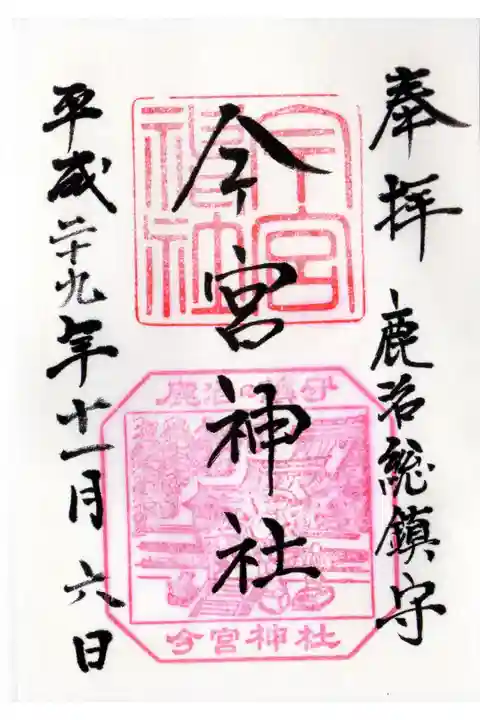 奉拝 鹿沼総鎮守
今宮神社
平成二十九年十一月六日
今宮神社
鹿沼の鎮守
今宮神社